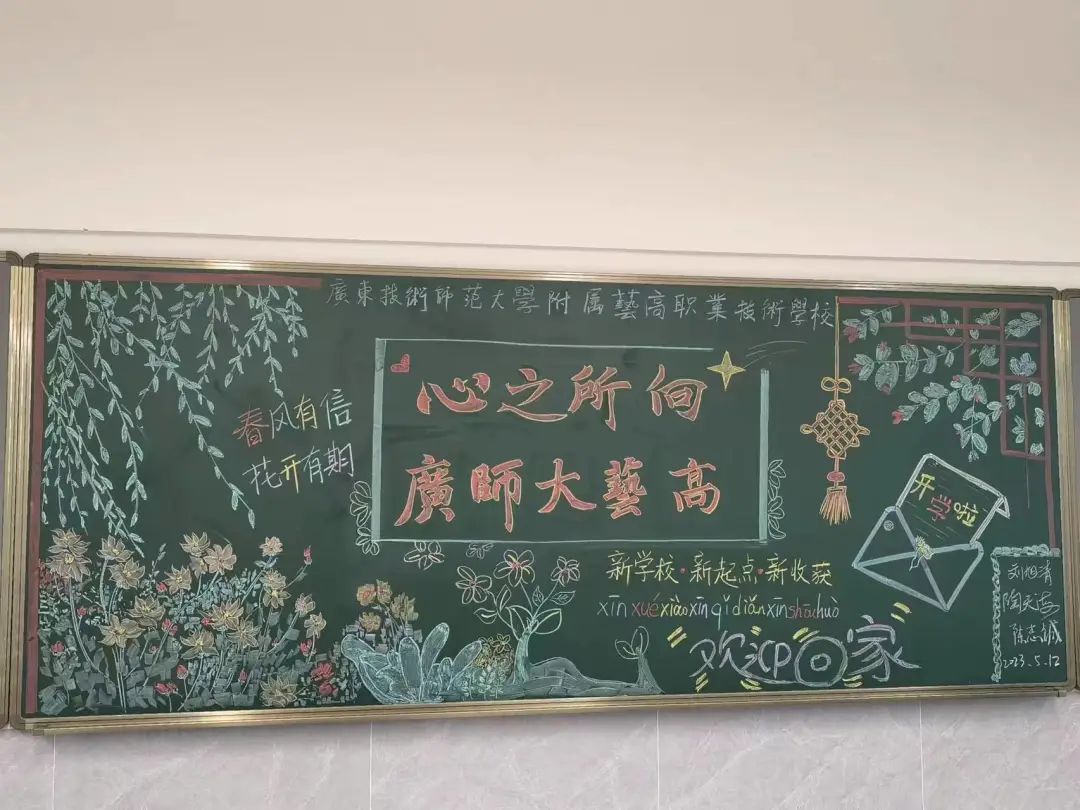 廣東技術师范大學附属藝高职業技術學校
心之所向
廣師大藝高
春风有信
花开有期
开学啦
新学校·新起点·新收获
xīn xuéxiàoxīnqǐdiǎnxīnshōuhuò
欢迎回家
刘旭清
陈志诚
2023.5.12